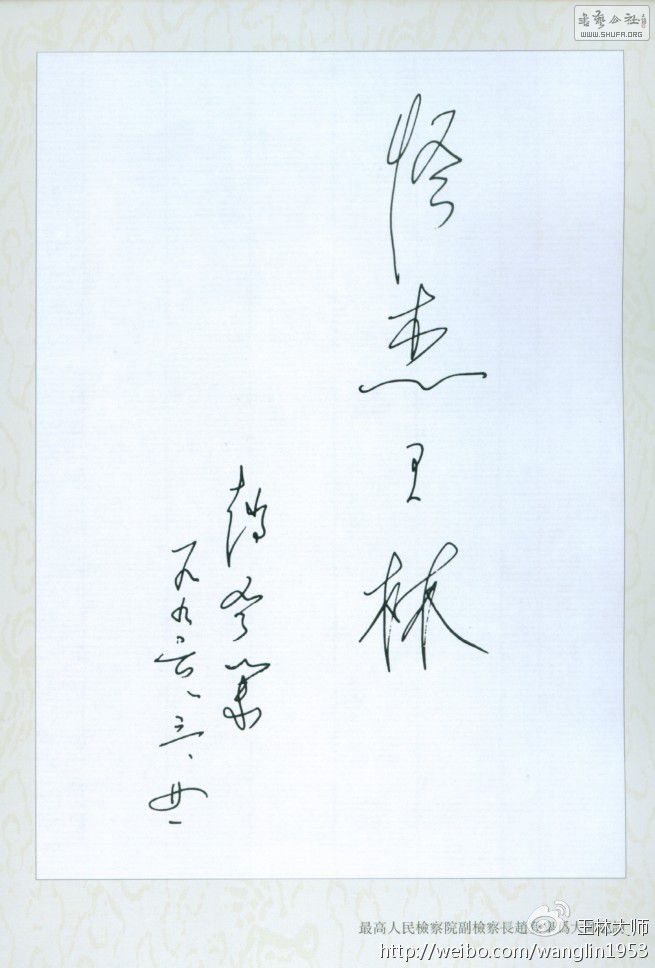 書藝公社
WWW.SHUFA.ORG
怪杰王林
赵登举
一九九六.三.廿一
最高人民檢察院副檢察長趙
王林大师
http://weibo.com/wanglin1953